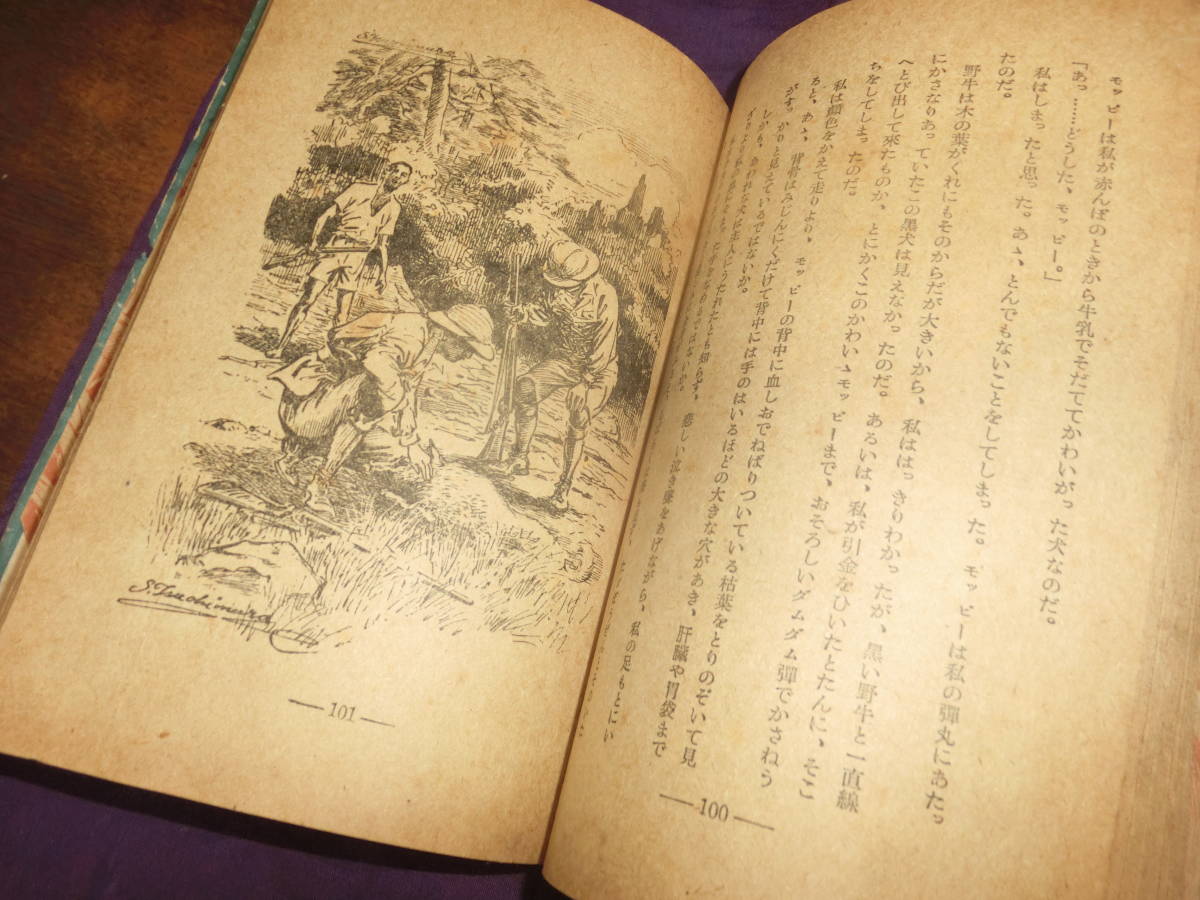 モッピーは私が赤んぼのときから牛乳でそだててかわいがった犬なのだ。
「あっ……どうした、モッピー。」
私はしまったと思った。あゝ、とんでもないことをしてしまった。モッピーは私の弾丸にあたっ
たのだ。
野牛は木の葉がくれにもそのからだが大きいから、私ははっきりわかったが、黒い野牛と一直線
にかさなりあっていたこの黒犬は見えなかったのだ。あるいは、私が引金をひいたとたんに、そこ
へとび出して來たものか、とにかくこのかわいゝモッピーまで、おそろしいダムダム彈でかさねう
ちをしてしまったのだ。
私は顏色をかえて走りより、モッピーの背中に血しおでねばりついている枯葉をとりのぞいて見
ると、あゝ、背骨はみじんにくだけて背中には手のはいるほどの大きな穴があき、肝臓や胃袋まで
がすっかりと見えているではないか。
しかも、あわれな犬は主人にうたれたとも知らず、悲しい泣き聲をあげながら、私の足もとにい
— 100 —
S. Tsuchimura
— 101 —